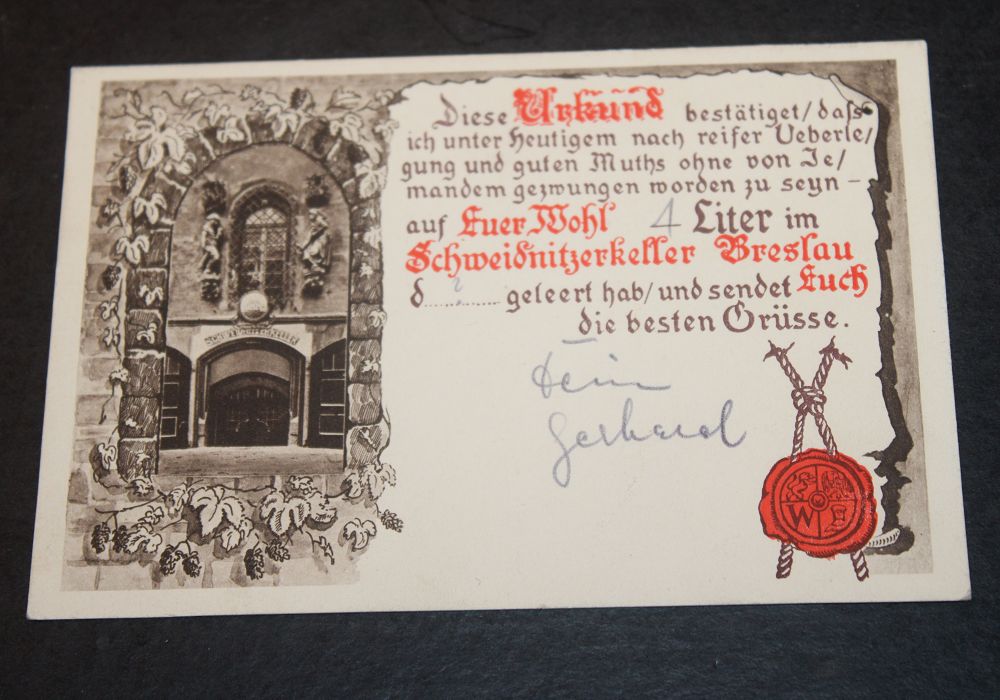 Diese Urkund bestätiget/ dass
ich unter Heutigem nach reifer Ueberle/
gung und guten Muths ohne von Je/
mandem gezwungen worden zu seyn –
auf Euer Wohl 4 Liter im
Schweidnitzerkeller Breslau
d......?...... geleert hab/ und sendet Euch
die besten Grüsse.
Dein
Gerhard
SCHWEIDNITZER KELLER
W